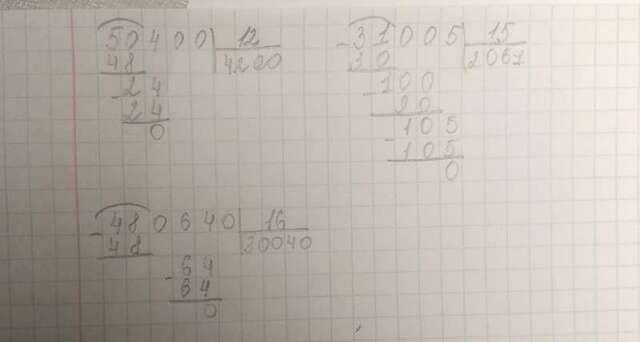 50400 | 12
48 | 4200
- 24
24
0
- 31005 | 15
30 | 2067
- 100
90
- 105
105
0
- 480640 | 16
48 | 20040
- 64
64
0